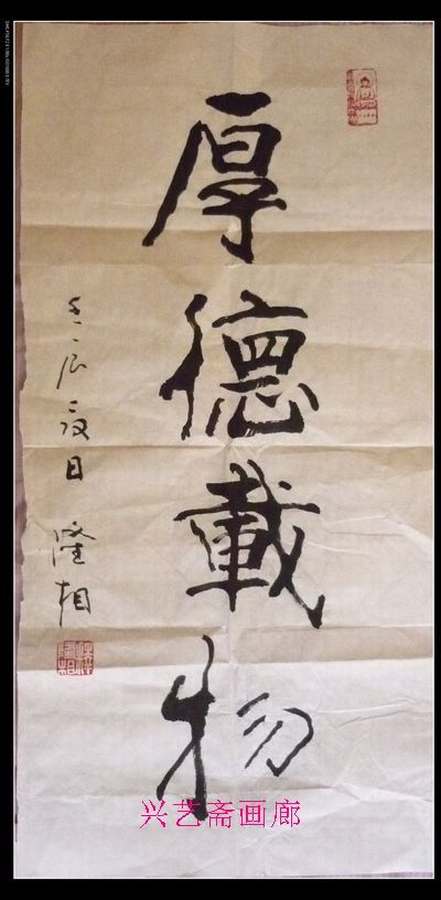 厚德載物
壬辰夏日
隆相
兴艺斋画廊